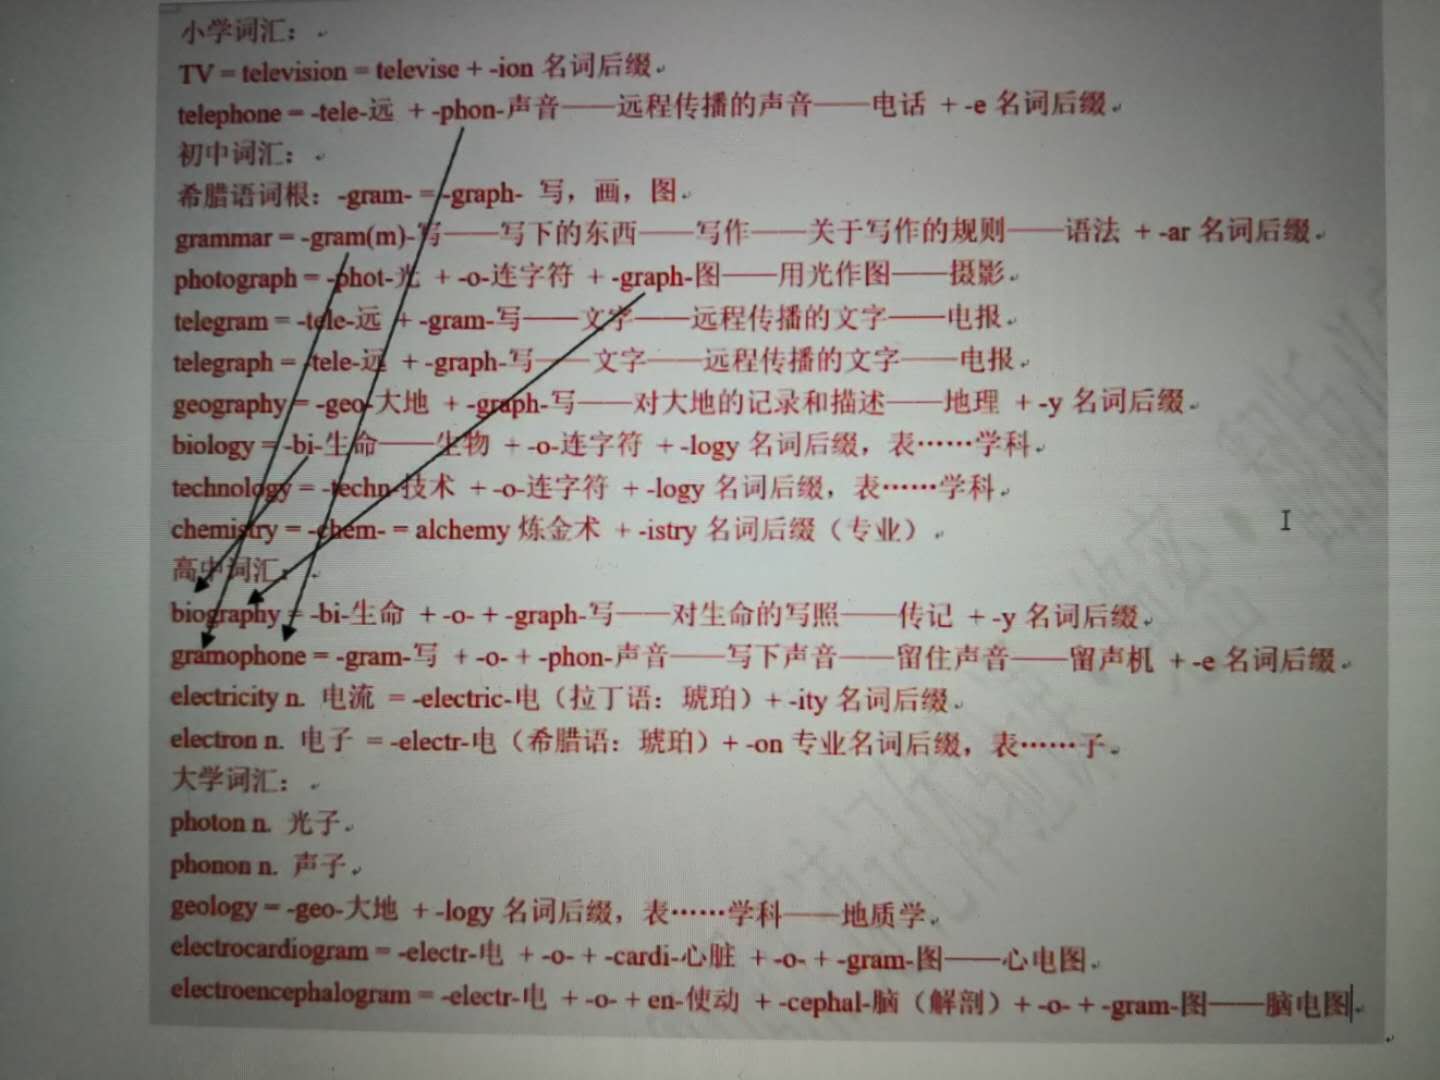 小学词汇：
TV = television = televise + -ion 名词后缀
telephone = -tele-远 + -phon-声音——远程传播的声音——电话 + -e 名词后缀
初中词汇：
希腊语词根：-gram- = -graph- 写，画，图
grammar = -gram(m)-写——写下的东西——写作——关于写作的规则——语法 + -ar 名词后缀
photograph = -phot-光 + -o-连字符 + -graph-图——用光作图——摄影
telegram = -tele-远 + -gram-写——文字——远程传播的文字——电报
telegraph = -tele-远 + -graph-写——文字——远程传播的文字——电报
geography = -geo-大地 + -graph-写——对大地的记录和描述——地理 + -y 名词后缀
biology = -bi-生命——生物 + -o-连字符 + -logy 名词后缀，表……学科
technology = -techn-技术 + -o-连字符 + -logy 名词后缀，表……学科
chemistry = -chem- = alchemy 炼金术 + -istry 名词后缀（专业）
高中词汇：
biography = -bi-生命 + -o- + -graph-写——对生命的写照——传记 + -y 名词后缀
gramophone = -gram-写 + -o- + -phon-声音——写下声音——留住声音——留声机 + -e 名词后缀
electricity n. 电流 = -electric-电（拉丁语：琥珀）+ -ity 名词后缀
electron n. 电子 = -electr-电（希腊语：琥珀）+ -on 专业名词后缀，表……子
大学词汇：
photon n. 光子
phonon n. 声子
geology = -geo-大地 + -logy 名词后缀，表……学科——地质学
electrocardiogram = -electr-电 + -o- + -cardi-心脏 + -o- + -gram-图——心电图
electroencephalogram = -electr-电 + -o- + en-使动 + -cephal-脑（解剖）+ -o- + -gram-图——脑电图